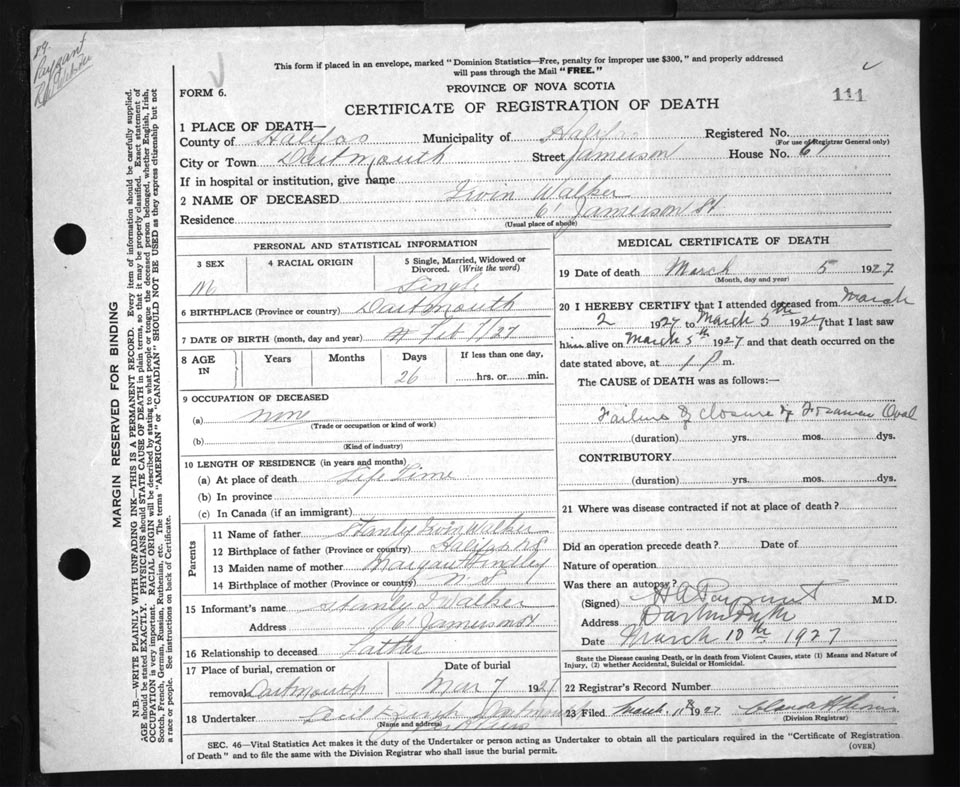 This form if placed in an envelope, marked "Dominion Statistics—Free, penalty for improper use $300," and properly addressed
will pass through the Mail "FREE."
FORM 6.
PROVINCE OF NOVA SCOTIA
CERTIFICATE OF REGISTRATION OF DEATH
111
1 PLACE OF DEATH—
County of Halifax Municipality of Halifax Registered No.
(For use of Registrar General only)
City or Town Dartmouth Street Jamieson House No. 61
If in hospital or institution, give name
2 NAME OF DECEASED Irvin Walker
Residence 61 Jamieson St
(Usual place of abode)
PERSONAL AND STATISTICAL INFORMATION
3 SEX M
4 RACIAL ORIGIN
5 Single, Married, Widowed or Divorced. (Write the word) Single
6 BIRTHPLACE (Province or country) Dartmouth
7 DATE OF BIRTH (month, day and year) Feb 7/27
8 AGE IN Years Months Days 26 If less than one day, hrs. or min.
9 OCCUPATION OF DECEASED
(a) none
(Trade or occupation or kind of work)
(b)
(Kind of industry)
10 LENGTH OF RESIDENCE (in years and months)
(a) At place of death Life Time
(b) In province
(c) In Canada (if an immigrant)
Parents
11 Name of father Stanley Irvin Walker
12 Birthplace of father (Province or country) Halifax N S
13 Maiden name of mother Hindley
14 Birthplace of mother (Province or country) N. S
15 Informant's name Stanly I Walker
Address 61 Jamieson St
16 Relationship to deceased Father
17 Place of burial, cremation or removal Dartmouth Date of burial Mar 7 1927
18 Undertaker Cecil Dartmouth
(Name and address)
MEDICAL CERTIFICATE OF DEATH
19 Date of death March 5 1927
(Month, day and year)
20 I HEREBY CERTIFY that I attended deceased from March
2 1927 to March 5th 1927 that I last saw
him alive on March 5th 1927 and that death occurred on the
date stated above, at 1 P m.
The CAUSE OF DEATH was as follows:—
Failure of closure of Foramen Oval
(duration) yrs. mos. dys.
CONTRIBUTORY
(duration) yrs. mos. dys.
21 Where was disease contracted if not at place of death?
Did an operation precede death? Date of
Nature of operation
Was there an autopsy?
(Signed) H A Payzant M.D.
Address Dartmouth
Date March 10th 1927
State the Disease causing Death, or in death from Violent Causes, state (1) Means and Nature of
Injury, (2) whether Accidental, Suicidal or Homicidal.
22 Registrar's Record Number
23 Filed March 11th 1927
(Division Registrar)
SEC. 46—Vital Statistics Act makes it the duty of the Undertaker or person acting as Undertaker to obtain all the particulars required in the "Certificate of Registration
of Death" and to file the same with the Division Registrar who shall issue the burial permit.
(OVER)
MARGIN RESERVED FOR BINDING
N.B.—WRITE PLAINLY WITH UNFADING INK—THIS IS A PERMANENT RECORD. Every item of information should be carefully supplied.
AGE should be stated EXACTLY. PHYSICIANS should STATE CAUSE OF DEATH in plain terms, so that it may be properly classified. Exact statement of
OCCUPATION is very important. RACIAL ORIGIN will be described by stating to what people or tongue the deceased person belonged, whether English, Irish,
Scotch, French, German, Russian, Ruthenian, etc. The terms "AMERICAN" or "CANADIAN" SHOULD NOT BE USED as they express citizenship but not
a race or people. See instructions on back of Certificate.
Payzant